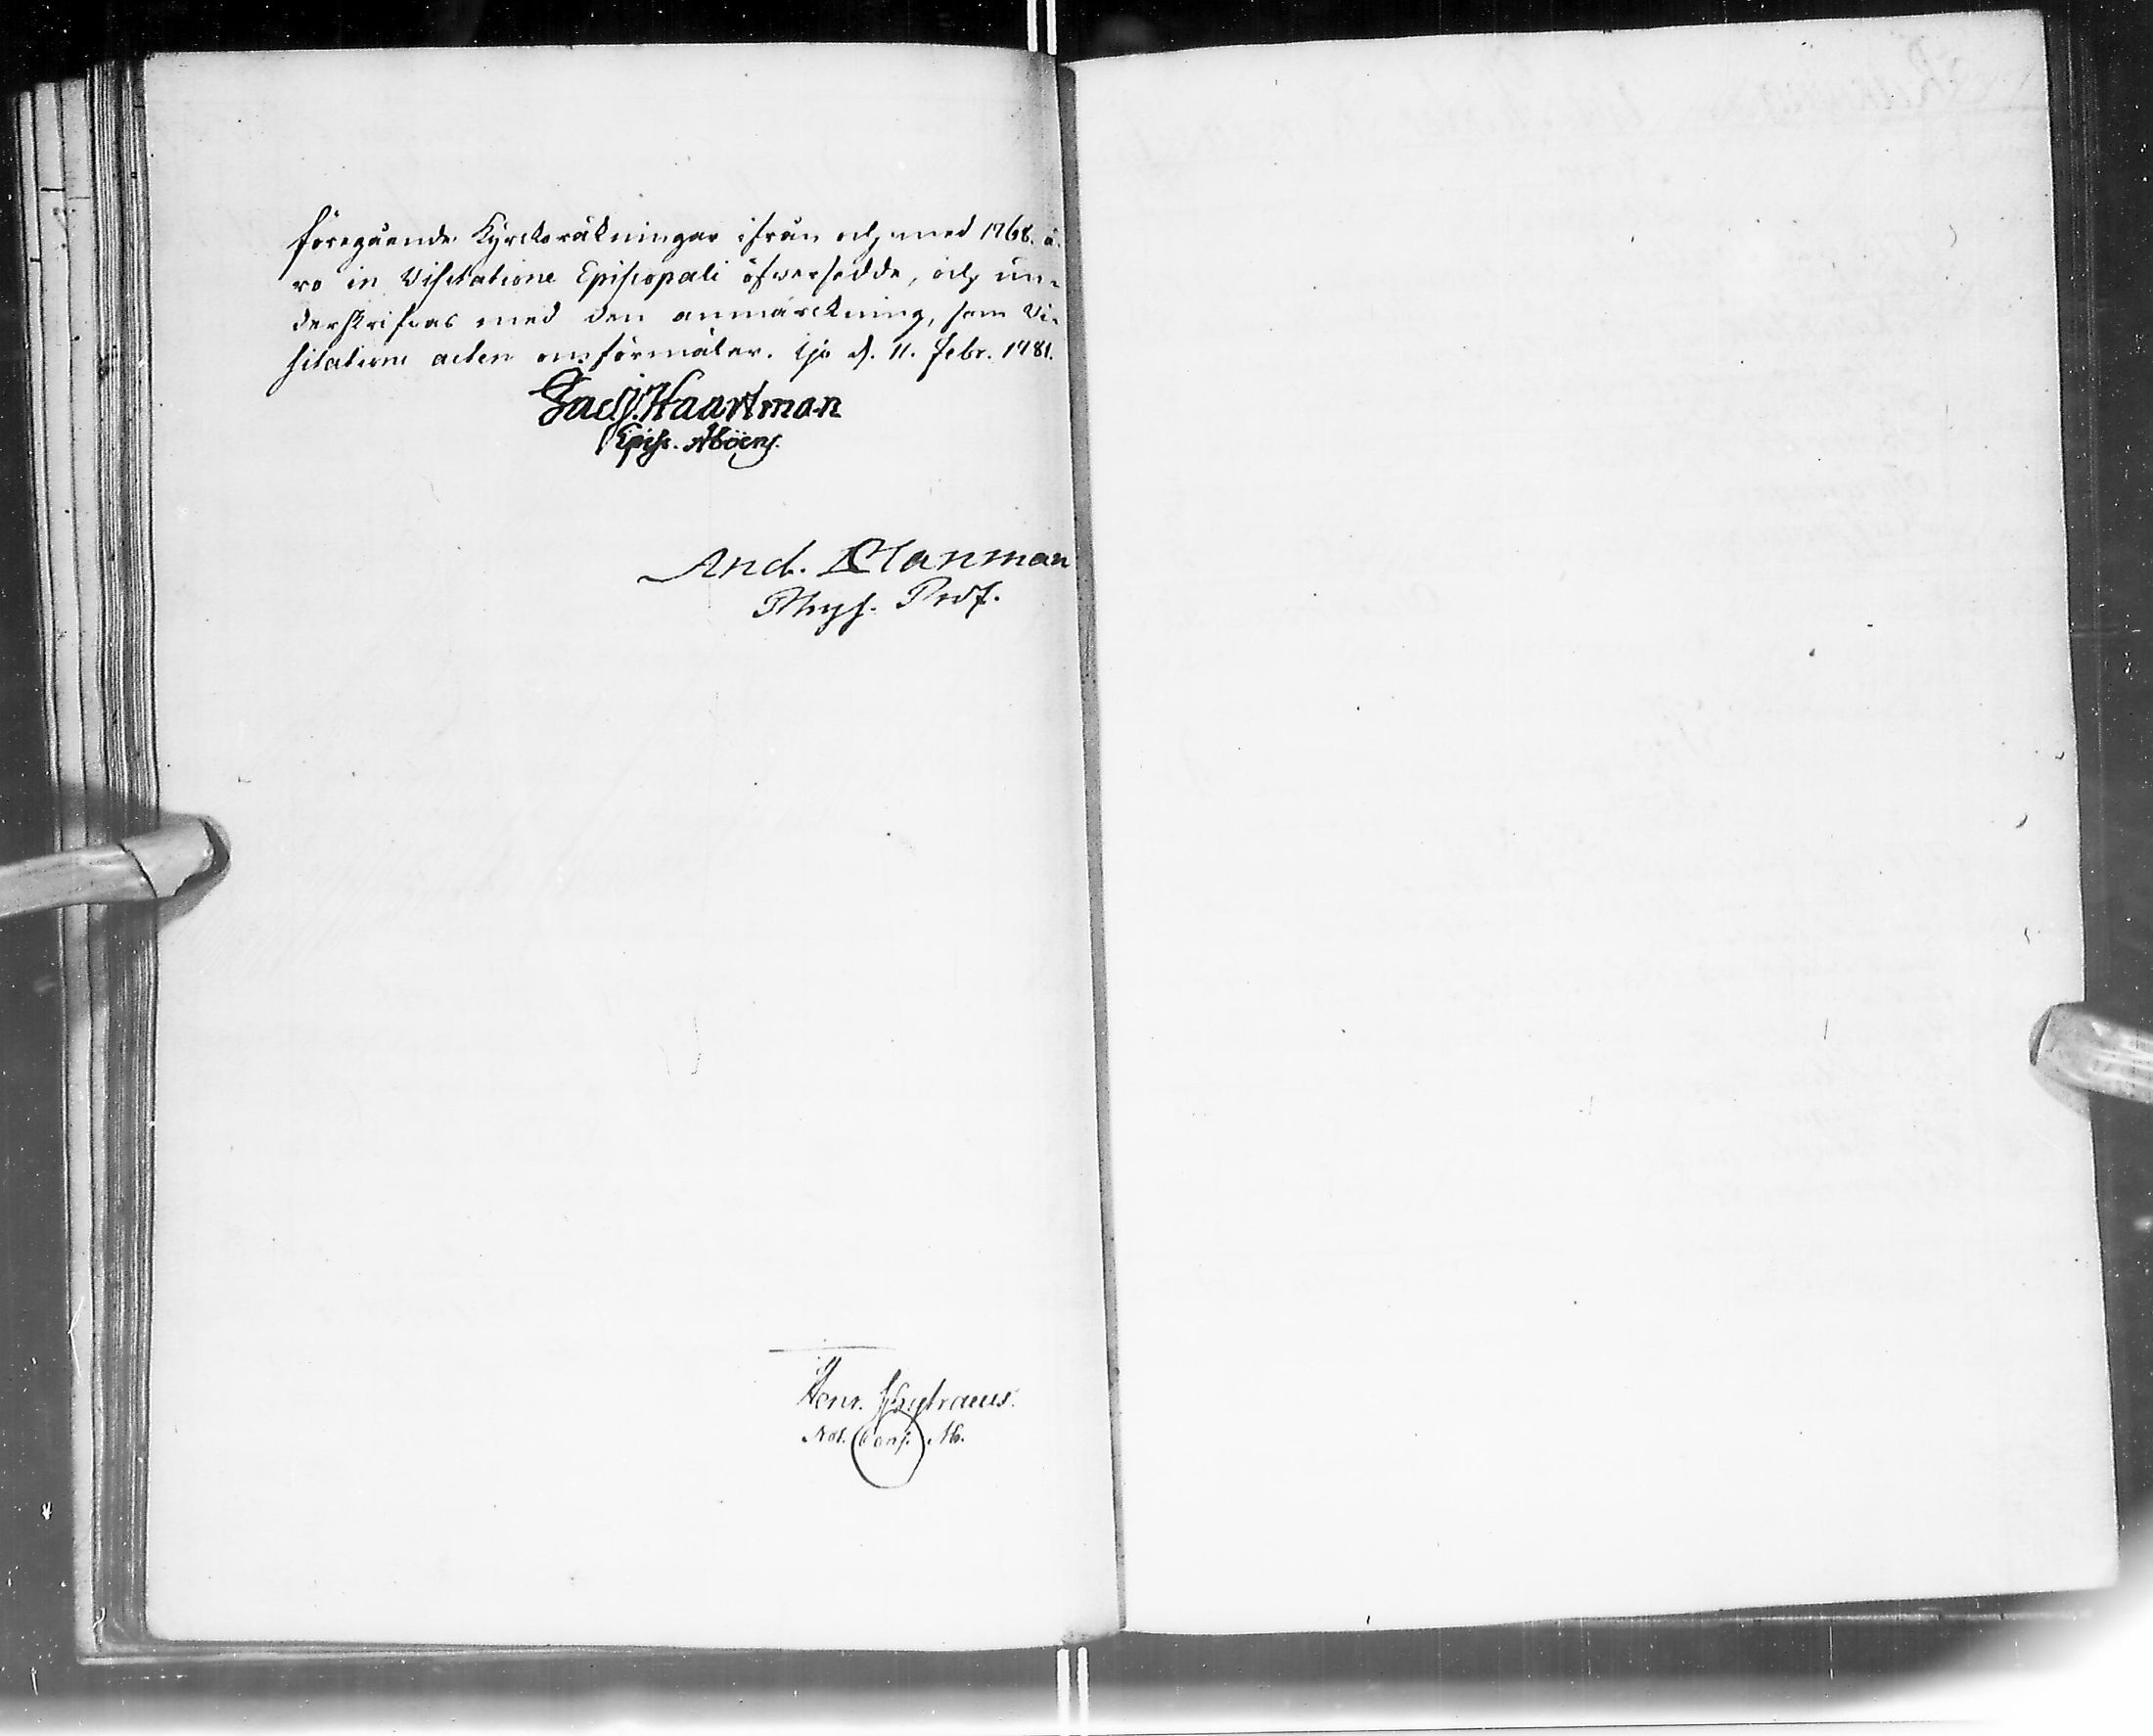 föregående Kyrckoräkningar ifrån och med 1768. ä-
ro in Visitatione Episcopali öfwersedde, och un-
derskrifvas med den anmärckning, som Vi-
sitations acten omförmäler. Ijo d. 11. Febr. 1781.
Jac. Haartman
Episc. Aboens.
And. Planman
Phys. Prof.
Henr.
Not. Cons. Ab.